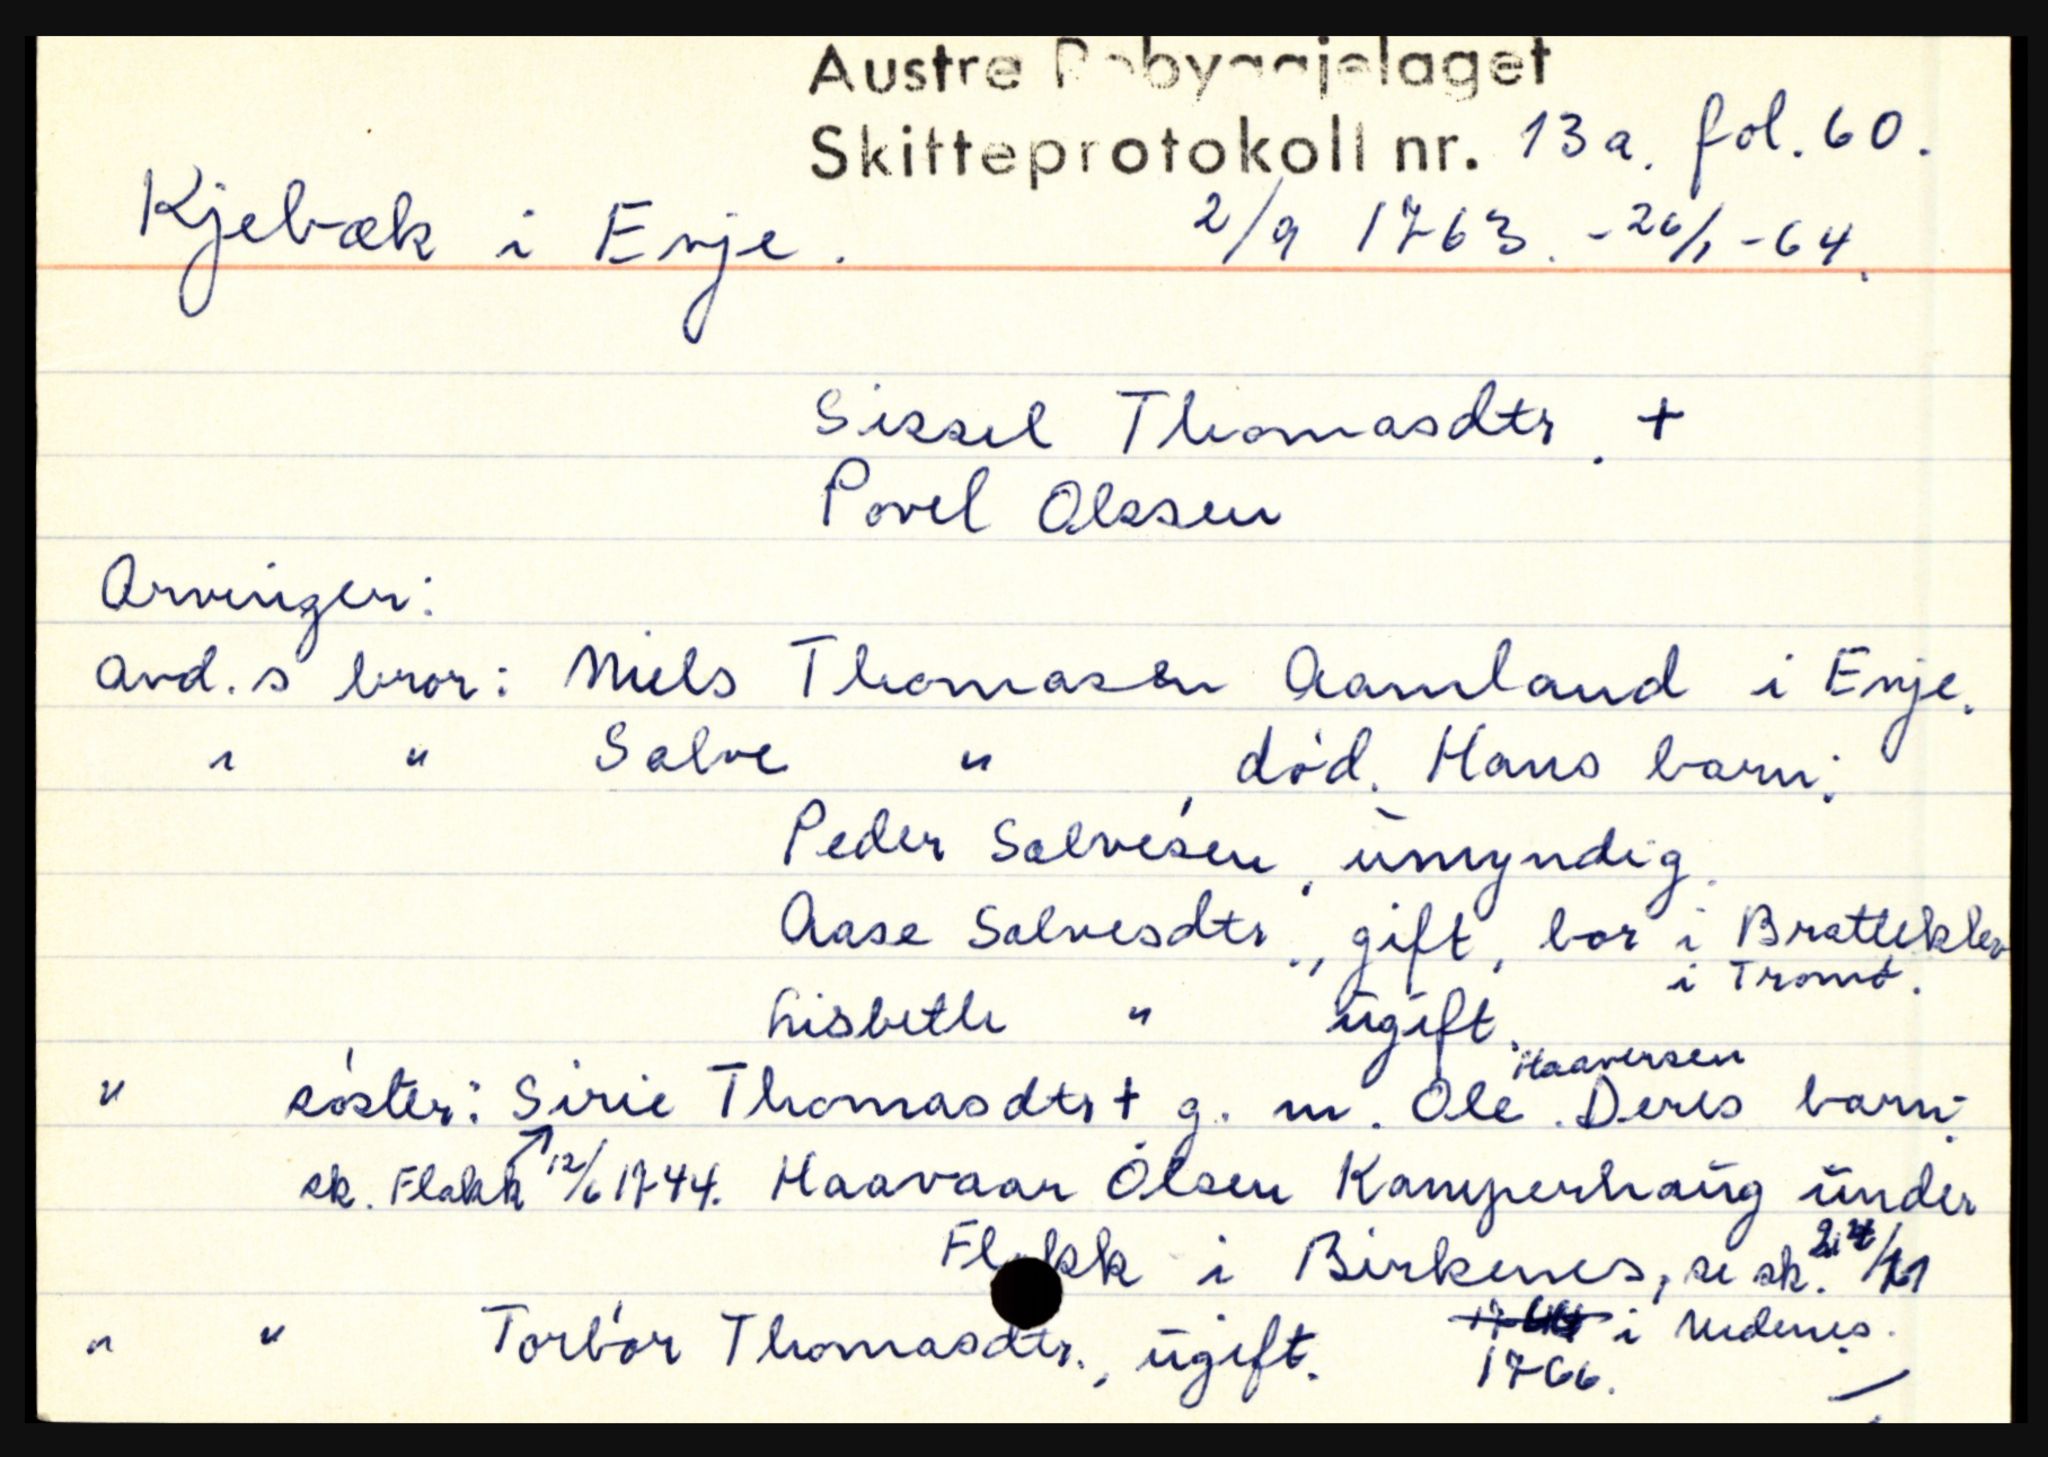 Austre Robyggjelaget
Skifteprotokoll nr. 13a. fol. 60.
Kjebæk i Evje. 2/9 1763. - 26/1 - 64.
Sissel Thomasdtr. +
Povel Olssen
Arvinger:
avd.s bror: Niels Thomasen Aamland i Evje.
" " Salve " , død. Hans barn:
Peder Salvesen, umyndig.
Aase Salvesdtr., gift, bor i Bratteklev
i Tromö.
Lisbeth " ugift.
" søster: Sirie Thomasdtr + g. m. Ole Haaversen. Deres barn:
sk. Flakk 12/6 1744. Haavaar Olsen Kamperhaug under
Flakk i Birkenes, se sk.
" " Torbor Thomasdtr., ugift. i Nedenes.
1766.